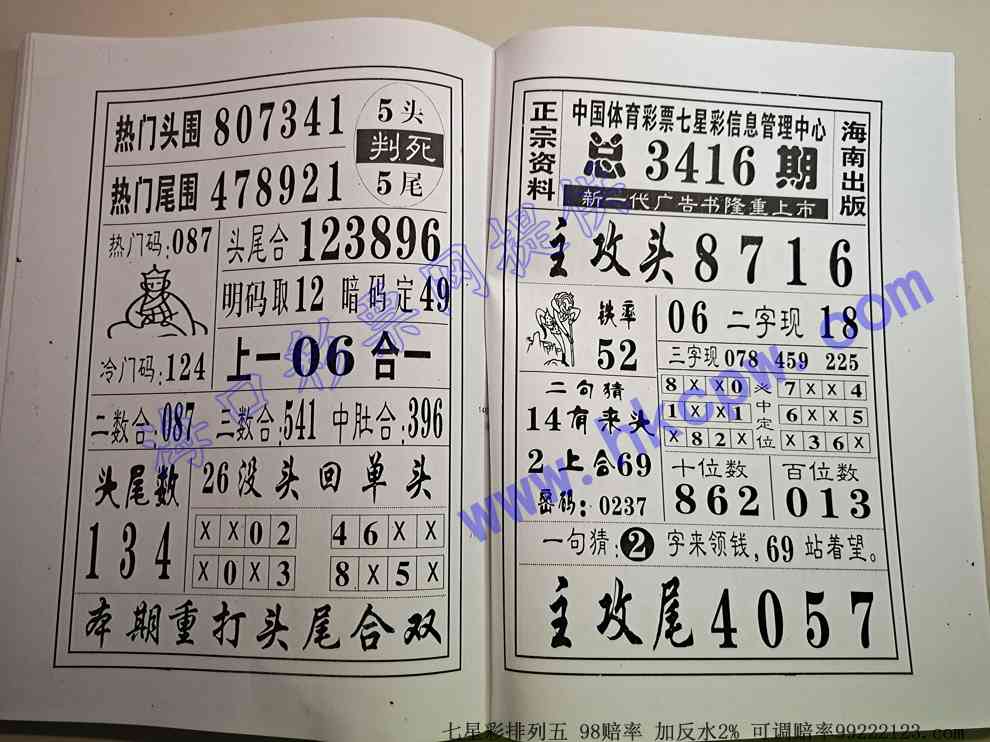 热门头围 807341
5头
判死
5尾
热门尾围 478921
热门码:087
头尾合 123896
明码取12 暗码定49
冷门码:124
上一06合一
二数合:087 三数合:541 中肚合:396
头尾数
134
26没头回单头
XX02 46XX
X0X3 8X5X
本期重打头尾合双
正宗资料
中国体育彩票七星彩信息管理中心
总3416期
新一代广告书隆重上市
海南出版
主攻头8716
铁率
52
06二字现18
三字现 078 459 225
二句猜
14有来头
2上合69
密码:0237
8XX0
1XX1
X82X
必中定位
7XX4
6XX5
X36X
十位数
862
百位数
013
一句猜:2字来领钱,69站着望。
主攻尾4057
海口彩票网提供
www.hkcpw.com
七星彩排列五 98赔率 加反水2% 可调赔率99222123.com